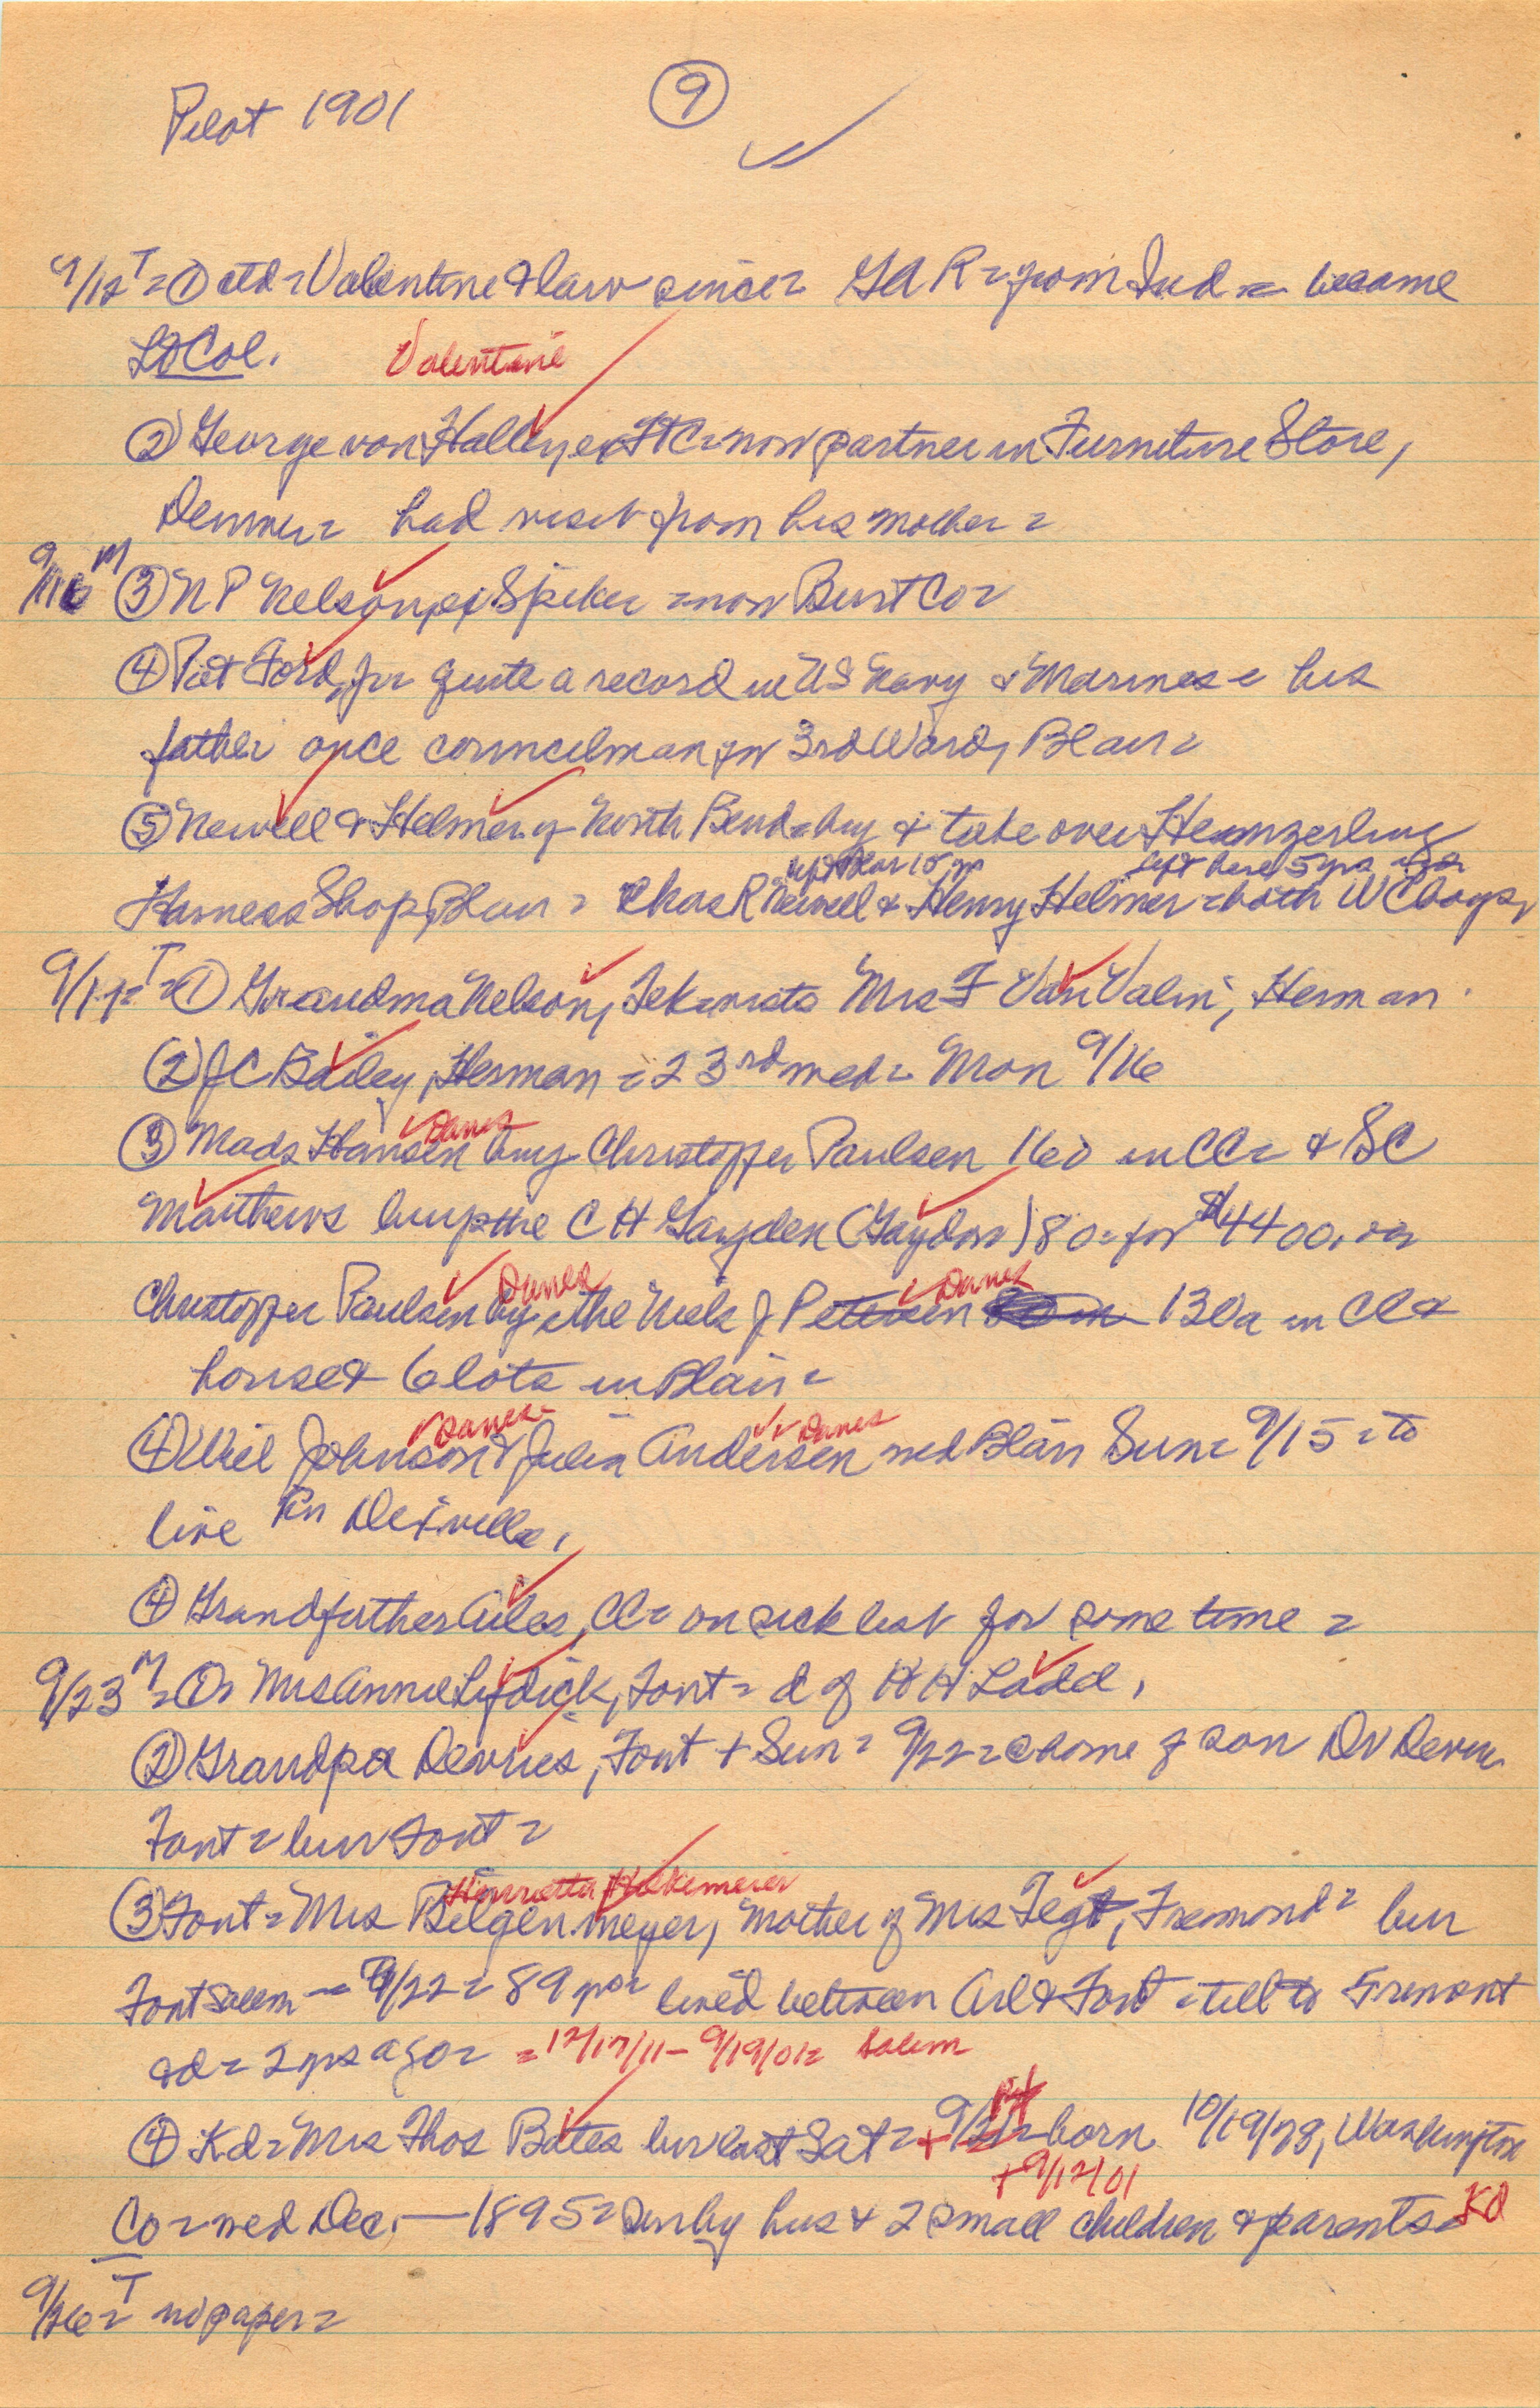 Pilot 1901
9
9/12 T = ① ctd = Valentine & law since = GAR = from Ind = became
Lt Col.
Valentine
② George von = now partner in Furniture Store,
Denver = had visit from his mother =
9/16 M ③ N P Nelson, ex Spiker = now Burt Co =
④ Pat Ford, jr = quite a record in US Navy & Marines = his
father once councilman fr 3rd Ward, Blair =
⑤ Newell & Helmer of North Bend = buy & take over Hemzerling
left Blair 15 yrs left here 5 yrs ago
Harness Shop, Blair = Chas R Newell & Henry Helmer = both WC boys,
T = ① Grandma Nelson, Tek = visits Mrs F Van Valin, Herman.
② J C Bailey, Herman = 23rd wed = Mon 9/16
Danes
③ Mads Hansen buy Christoffer Paulsen 160 in CC = & BC
Matthews buys the C H Gayden (Gaydon) 80 = for $4400.00
Danes Danes
Christoffer Paulsen by the Niels J Petersen 130a in CC &
house & 6 lots in Blair =
Danes = Danes
④ Will Johnson & Julia Andersen wed Blair Sun = 9/15 = to
live in
④ Grandfather Ailes, CC = on sick list for some time =
9/23 M = ① Mrs Annie Lydick, Font = d of H H Ladd,
② Grandpa Devries, Font + Sun = 9/22 = @ home of son Dr Devries
Font = bur Font =
Henrietta
③ Font = Mrs Bilgen meyer, mother of Mrs Tegt, Fremond = bur
Font Salem = 9/22 = 89 yrs = lived between Arl & Font = till to Fremont
= 2 yrs ago = = 12/17/11 - 9/19/01 = Salem
④ Kd = Mrs Thos Bates bur last Sat = + = born 10/19/78, Washington
+ 9/12/01
Co = wed Dec. — 1895 = sur by hus & 2 small children & parents = Kd
9/26 = T no paper =